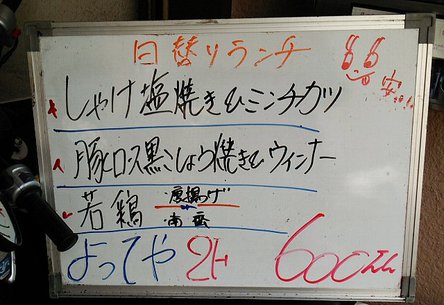 日替りランチ
安
しゃけ塩焼き&ミンチカツ
豚ロース黒こしょう焼き&ウィンナー
若鶏 唐揚げ
南蛮
よってや 2F 600エん